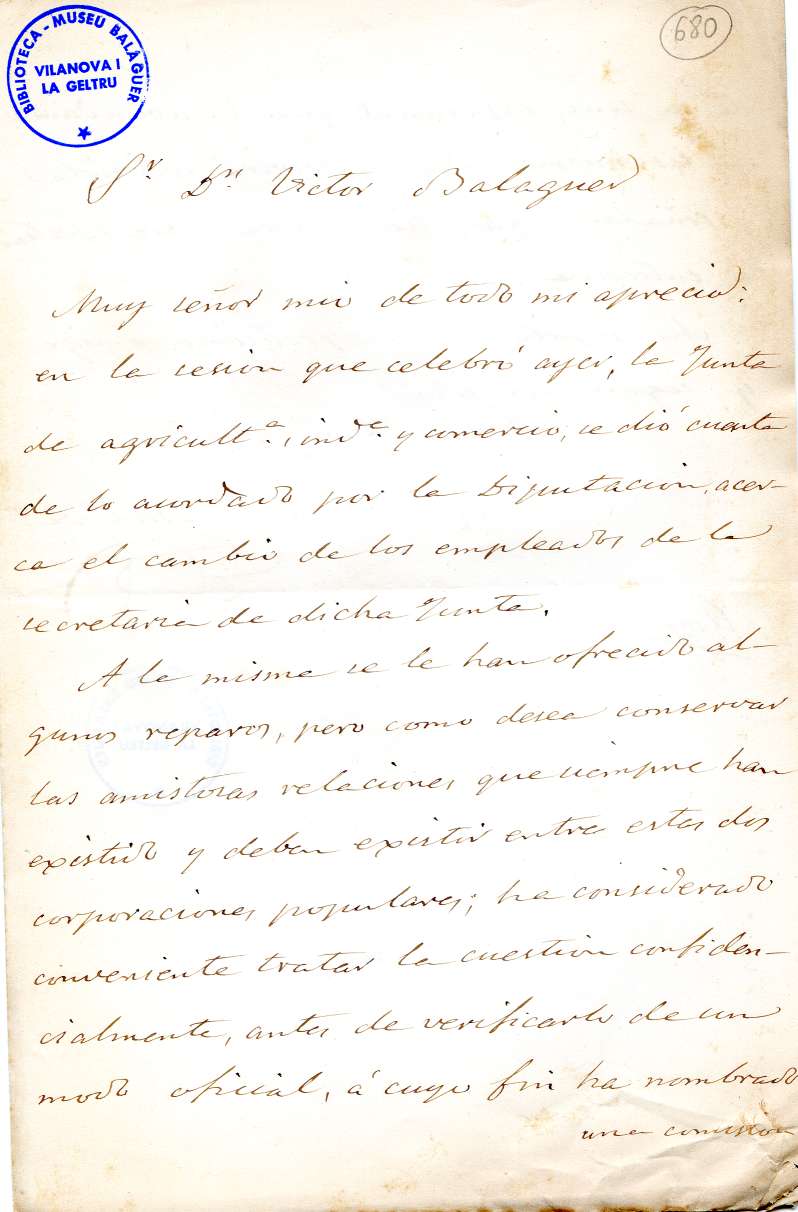 BIBLIOTECA - MUSEU BALAGUER
VILANOVA I
LA GELTRU
680
Sr. Dn. Victor Balaguer
Muy señor mio de todo mi aprecio:
en la sesion que celebró ayer, la Junta
de agricult.a, ind.a y comercio, se dió cuenta
de lo acordado por la Diputacion, acer-
ca el cambio de los empleados de la
secretaria de dicha Junta.
A la misma se le han ofrecido al-
gunos reparos, pero como desea conservar
las amistosas relaciones que siempre han
existido y deben existir entre estas dos
corporaciones populares; ha considerado
conveniente tratar la cuestion confiden-
cialmente, antes de verificarlo de un
modo oficial, á cuyo fin ha nombrado
una comision